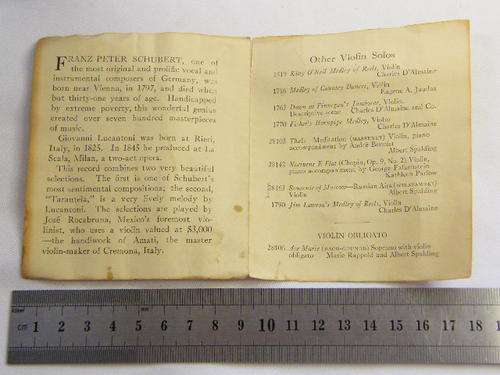 FRANZ PETER SCHUBERT, one of
the most original and prolific vocal and
instrumental composers of Germany, was
born near Vienna, in 1797, and died when
but thirty-one years of age. Handicapped
by extreme poverty, this wonderful genius
created over seven hundred masterpieces
of music.
Giovanni Lucantoni was born at Rieti,
Italy, in 1825. In 1845 he produced at La
Scala, Milan, a two-act opera.
This record combines two very beautiful
selections. The first is one of Schubert's
most sentimental compositions; the second,
"Tarantela," is a very lively melody by
Lucantoni. The selections are played by
José Rocabruna, Mexico's foremost vio-
linist, who uses a violin valued at $3,000
—the handiwork of Amati, the master
violin-maker of Cremona, Italy.
Other Violin Solos
Kitty O'Neil Medley of Reels, Violin
Charles D'Almaine
Medley of Country Dances, Violin
Eugene A. Jaudas
Down in Finnegan's Junkyard, Violin
Descriptive scene Charles D'Almaine and Co.
1770 Fisher's Hornpipe Medley, Violin
Charles D'Almaine
Thaïs—Meditation (MASSENET) Violin, piano
accompaniment by André Benoist
Albert Spalding
Nocturne E Flat (Chopin, Op. 9, No. 2) Violin,
piano accompaniment, by George Falkenstein
Kathleen Parlow
Souvenir of Moscow—Russian Airs (WIENIAWSKY)
Albert Spalding
Jim Lawson's Medley of Reels, Violin
Charles D'Almaine
VIOLIN OBLIGATO
Ave Maria (BACH-GOUNOD) Soprano with violin
obligato Marie Rappold and Albert Spalding
cm 1 2 3 4 5 6 7 8 9 10 11 12 13 14 15 16 17 18